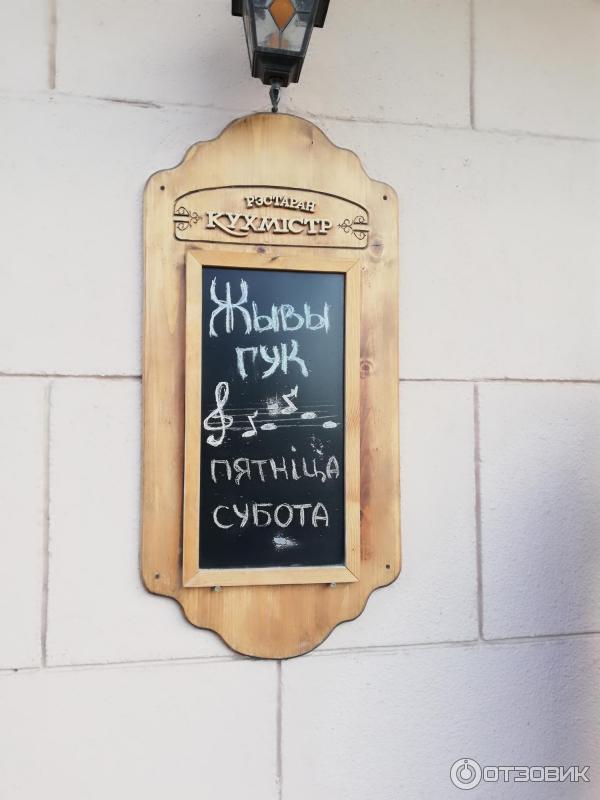 РЭСТАРАН
КУХМІСТР
Жывы
гук
пятніца
субота
ОТЗОВИК